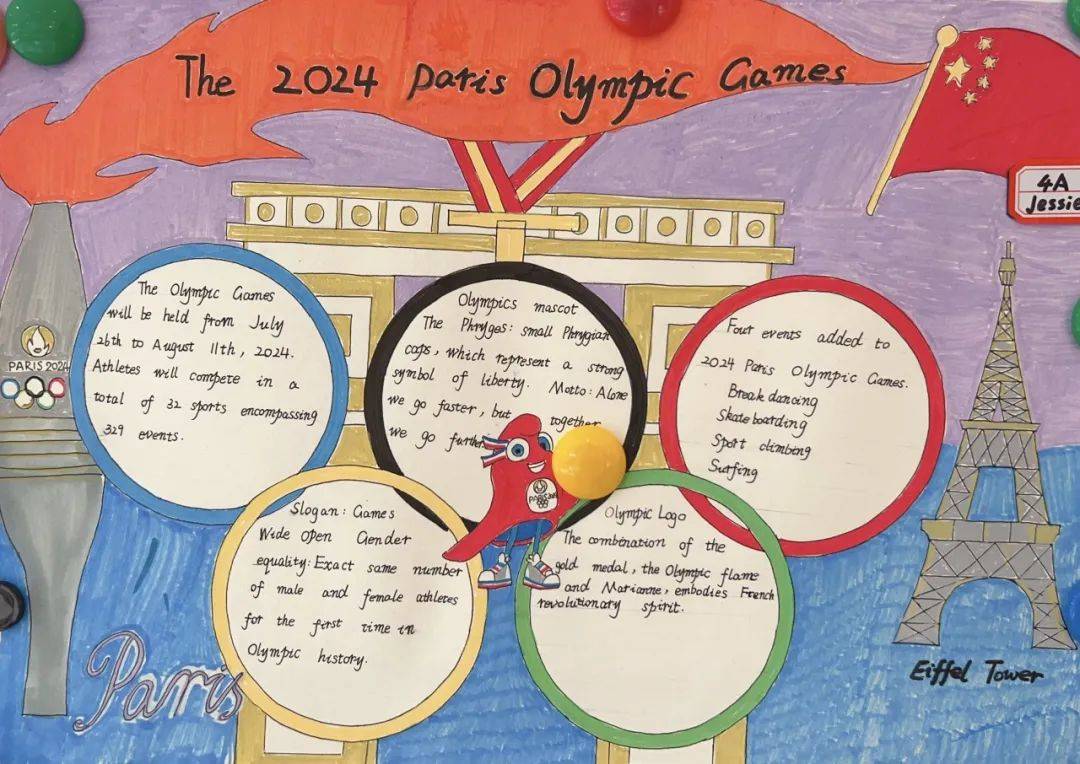 The 2024 Paris Olympic Games
4A
Jessie
PARIS 2024
The Olympic Games
will be held from July
26th to August 11th, 2024.
Athletes will compete in a
total of 32 sports encompassing
329 events.
Olympics mascot
The Phryges: small Phrygian
caps, which represent a strong
symbol of liberty. Motto: Alone
we go faster, but together
we go further
Four events added to
2024 Paris Olympic Games.
Break dancing
Skateboarding
Sport climbing
Surfing
Slogan: Games
Wide Open Gender
equality: Exact same number
of male and female athletes
for the first time in
Olympic history.
Olympic Logo
The combination of the
gold medal, the Olympic flame
and Marianne, embodies French
revolutionary spirit.
Paris
Eiffel Tower